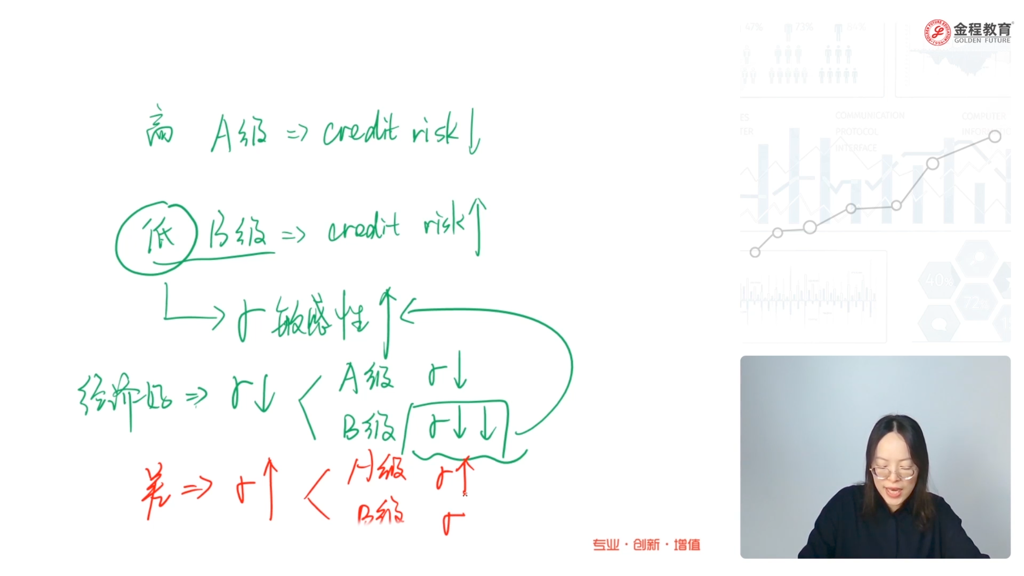 金程教育
GOLDEN FUTURE
高 A级 => credit risk↓
低 B级 => credit risk↑
r 敏感性↑
经济好 => r↓ < A级 r↓
B级 r↓↓
差 => r↑ < A级 r↑
B级 r
专业·创新·增值
COMMUNICATION
PROTOCOL
INTERFACE